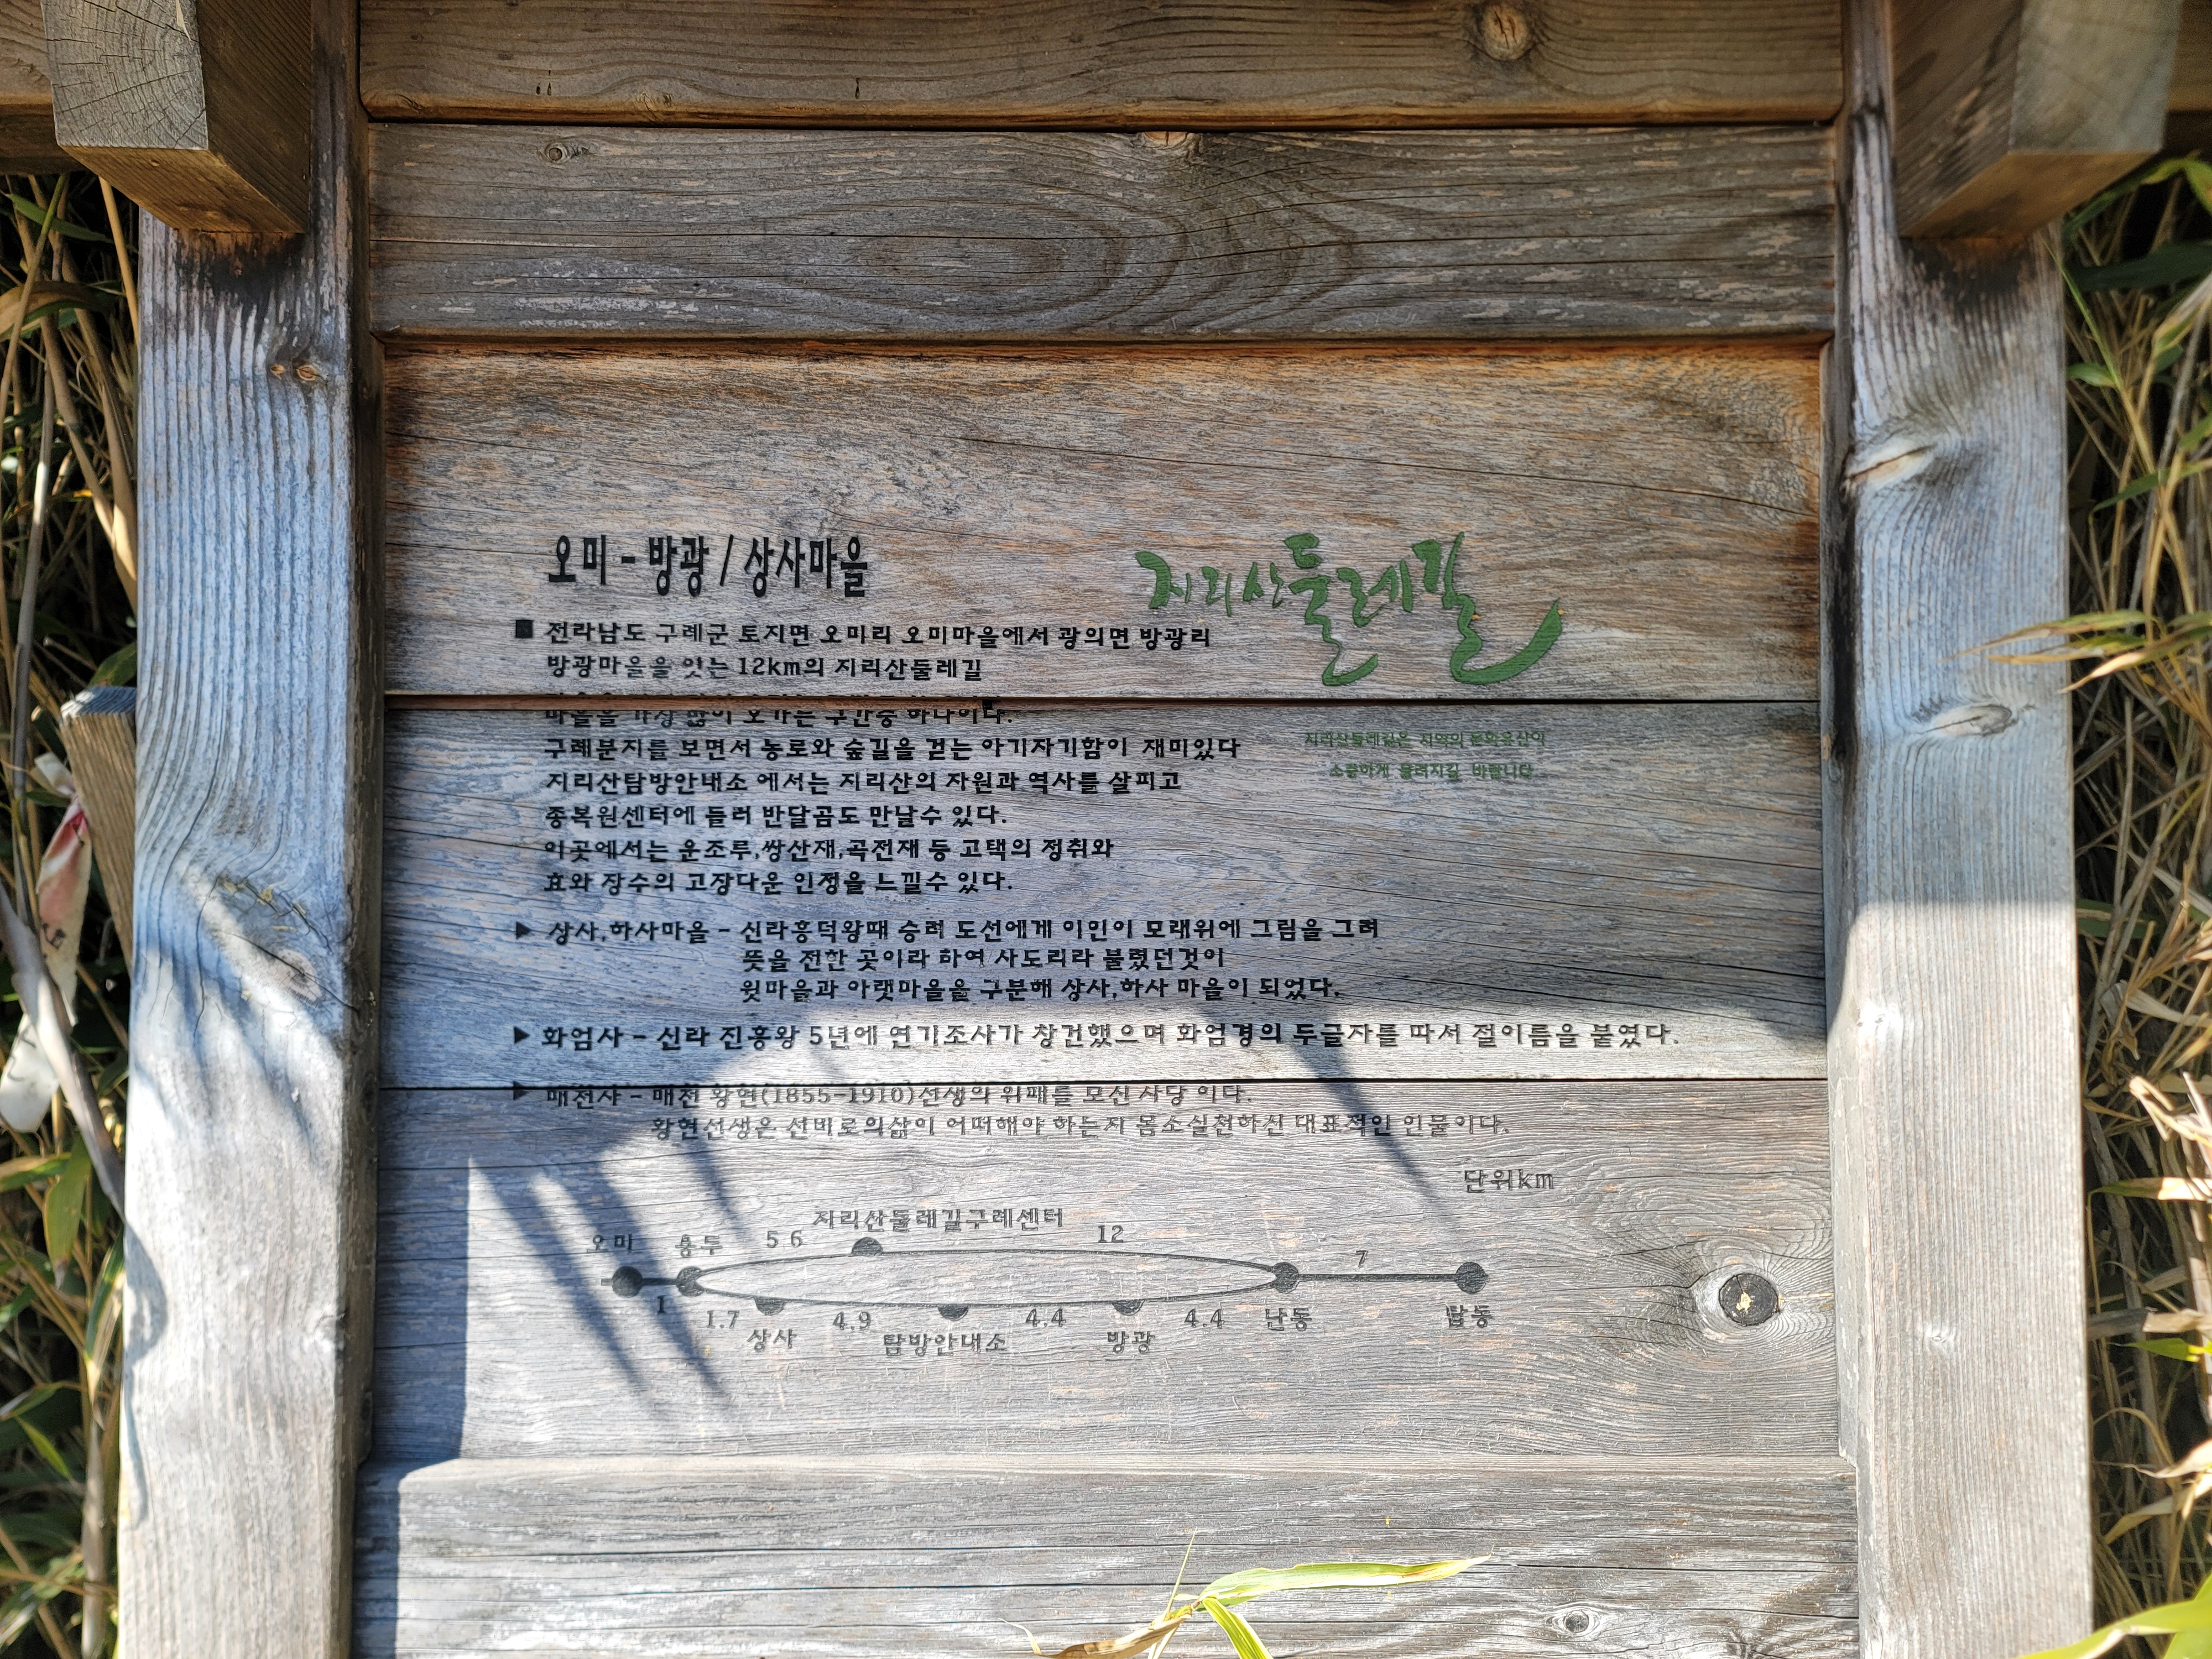 오미 - 방광 / 상사마을
지리산둘레길
■ 전라남도 구례군 토지면 오미리 오미마을에서 광의면 방광리
방광마을을 잇는 12km의 지리산둘레길
마을을 가장 많이 오가는 구간중 하나이다.
구례분지를 보면서 농로와 숲길을 걷는 아기자기함이 재미있다
지리산둘레길은 지역의 문화유산이
소중하게 물려지길 바랍니다
지리산탐방안내소 에서는 지리산의 자원과 역사를 살피고
종복원센터에 들러 반달곰도 만날수 있다.
이곳에서는 운조루,쌍산재,곡전재 등 고택의 정취와
효와 장수의 고장다운 인정을 느낄수 있다.
▶ 상사,하사마을 - 신라흥덕왕때 승려 도선에게 이인이 모래위에 그림을 그려
뜻을 전한 곳이라 하여 사도리라 불렸던것이
윗마을과 아랫마을을 구분해 상사,하사 마을이 되었다.
▶ 화엄사 - 신라 진흥왕 5년에 연기조사가 창건했으며 화엄경의 두글자를 따서 절이름을 붙였다.
▶ 매천사 - 매천 황현(1855-1910)선생의 위패를 모신 사당 이다.
황현선생은 선비로의삶이 어떠해야 하는지 몸소실천하신 대표적인 인물이다.
단위km
지리산둘레길구례센터
오미 용두 5 6 12
7
1
1.7 4.9 4.4 4.4 난동 탑동
상사 탐방안내소 방광